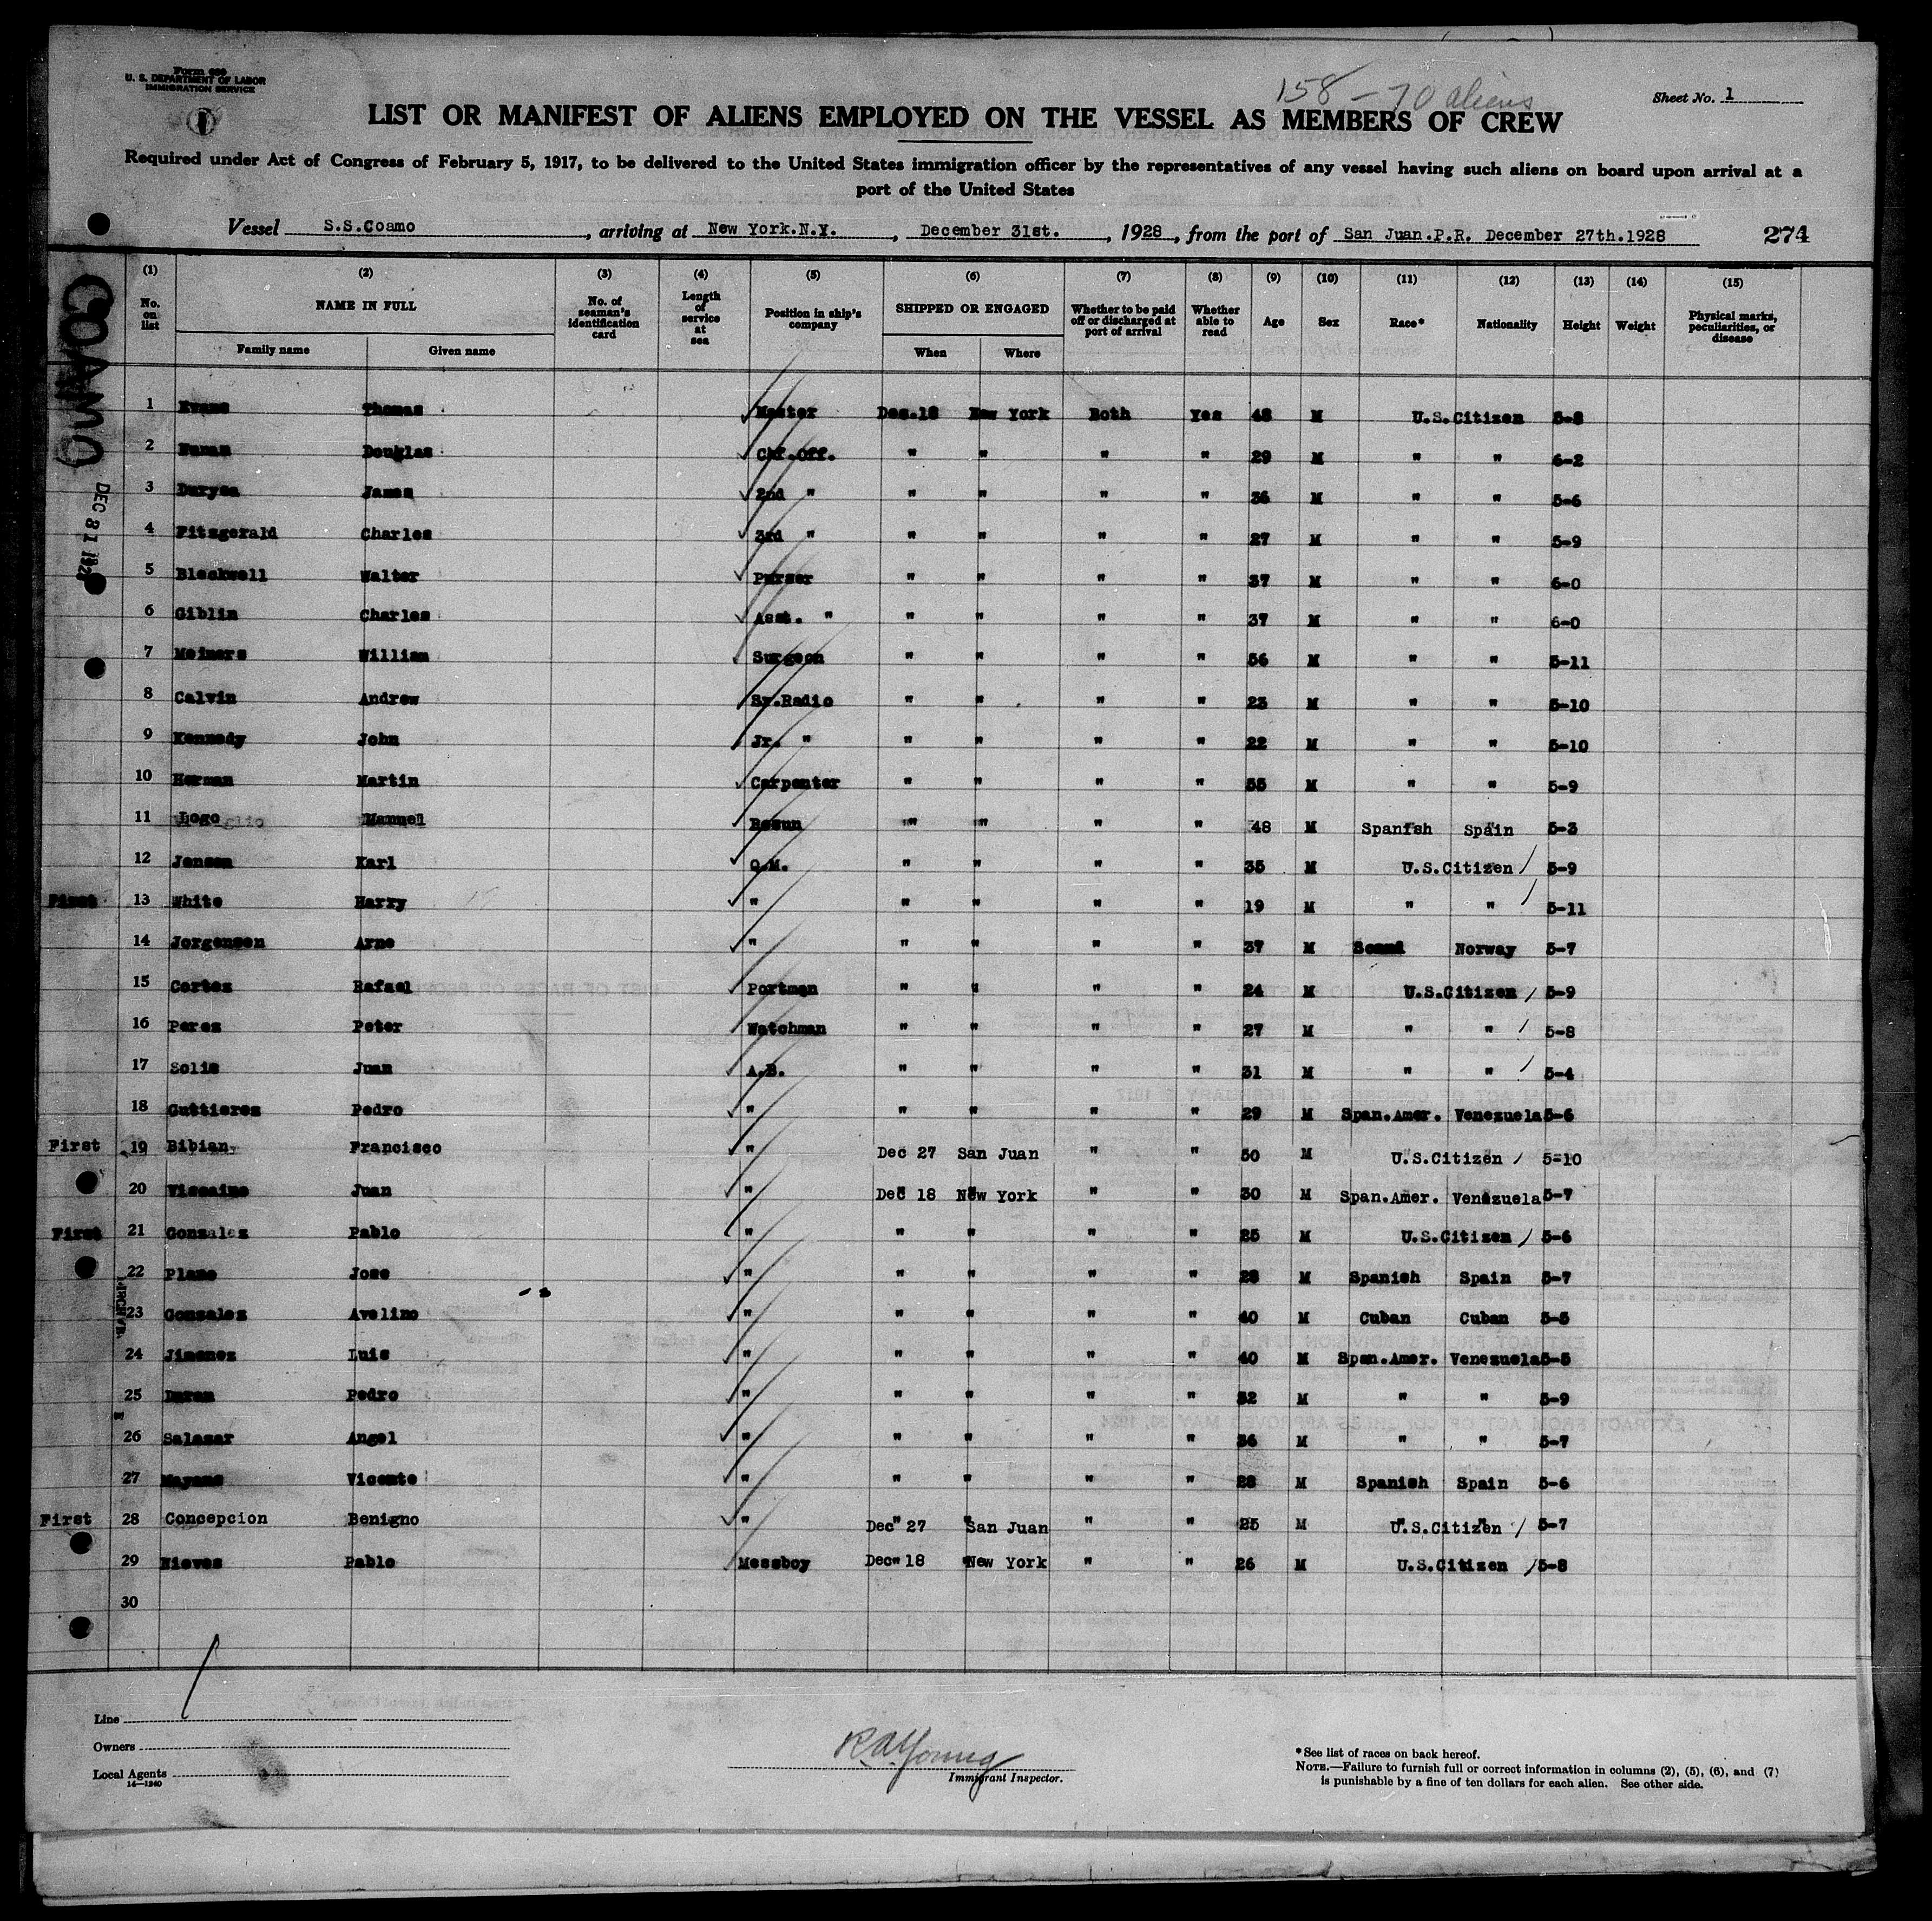 Form 689
U. S. DEPARTMENT OF LABOR
IMMIGRATION SERVICE
158 - 70 aliens
Sheet No. 1
LIST OR MANIFEST OF ALIENS EMPLOYED ON THE VESSEL AS MEMBERS OF CREW
Required under Act of Congress of February 5, 1917, to be delivered to the United States immigration officer by the representatives of any vessel having such aliens on board upon arrival at a
port of the United States
Vessel S.S.Coamo, arriving at New York.N.Y., December 31st., 1928, from the port of San Juan.P.R. December 27th.1928 274
COAMO
(1) (2) (3) (4) (5) (6) (7) (8) (9) (10) (11) (12) (13) (14) (15)
No. on list NAME IN FULL Family name Given name No. of seaman's identification card Length of service at sea Position in ship's company SHIPPED OR ENGAGED When Where Whether to be paid off or discharged at port of arrival Whether able to read Age Sex Race* Nationality Height Weight Physical marks, peculiarities, or disease
1 Evans Thomas Master Dec.18 New York Both Yes 48 M U.S.Citizen 5-8
2 Nunan Douglas Chf.Off. " " " " 29 M " " 6-2
3 Duryea James 2nd " " " " " 36 M " " 5-6
4 Fitzgerald Charles 3rd " " " " " 27 M " " 5-9
5 Blackwell Walter Purser " " " " 37 M " " 6-0
6 Giblin Charles Asst. " " " " " 37 M " " 6-0
7 Meiners William Surgeon " " " " 56 M " " 5-11
8 Calvin Andrew Sr.Radio " " " " 23 M " " 5-10
9 Kennedy John Jr. " " " " " 22 M " " 5-10
10 Herman Martin Carpenter " " " " 55 M " " 5-9
11 Logo Manuel Bosun " " " " 48 M Spanish Spain 5-3
12 Jensen Karl Q.M. " " " " 35 M U.S.Citizen 5-9
First 13 White Harry " " " " " 19 M " " 5-11
14 Jorgensen Arne " " " " " 37 M Scand Norway 5-7
15 Cortes Rafael Portman " " " " 24 M U.S.Citizen 5-9
16 Perez Peter Watchman " " " " 27 M " " 5-8
17 Solis Juan A.B. " " " " 31 M " " 5-4
18 Guttierez Pedro " " " " " 29 M Span.Amer. Venezuela 5-6
First 19 Bibian Francisco " Dec 27 San Juan " " 50 M U.S.Citizen 5-10
20 Viscaino Juan " Dec 18 New York " " 30 M Span.Amer. Venezuela 5-7
First 21 Gonzalez Pablo " " " " " 25 M U.S.Citizen 5-6
22 Plano Jose " " " " " 28 M Spanish Spain 5-7
23 Gonzalez Avelino " " " " " 40 M Cuban Cuban 5-5
24 Jimenez Luis " " " " " 40 M Span.Amer. Venezuela 5-5
25 Duran Pedro " " " " " 32 M " " 5-9
26 Salazar Angel " " " " " 36 M " " 5-7
27 Mayans Vicente " " " " " 28 M Spanish Spain 5-6
First 28 Concepcion Benigno " Dec 27 San Juan " " 25 M U.S.Citizen 5-7
29 Nieves Pablo Messboy Dec 18 New York " " 26 M U.S.Citizen 5-8
30
Line
Owners
Local Agents
14—1240
R A Young
Immigrant Inspector.
*See list of races on back hereof.
NOTE.—Failure to furnish full or correct information in columns (2), (5), (6), and (7)
is punishable by a fine of ten dollars for each alien. See other side.